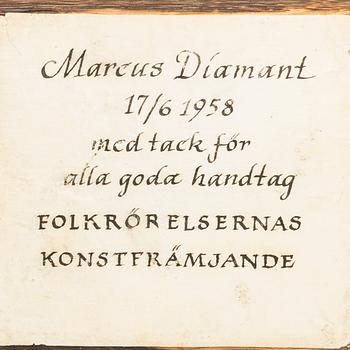 Marcus Diamant
17/6 1958
med tack för
alla goda handtag
FOLKRÖRELSERNAS
KONSTFRÄMJANDE